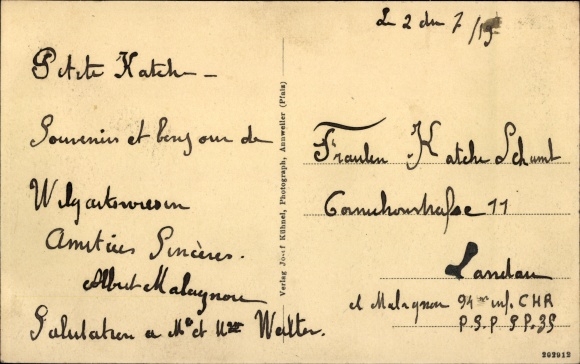 Le 2 du 7/19
Petite Katche –
Souvenirs et bonjour de
Wilgartswiesen
Amitiés Sincères.
Albert Malagnou
Salutation a Mr et Mme Walter.
Verlag Josef Kühnel, Photograph, Annweiler (Pfalz)
Fraulen Katche Schmit
11
Landau
el Malagnou 94me inf. CHR
P.S.P SP. 39
292913